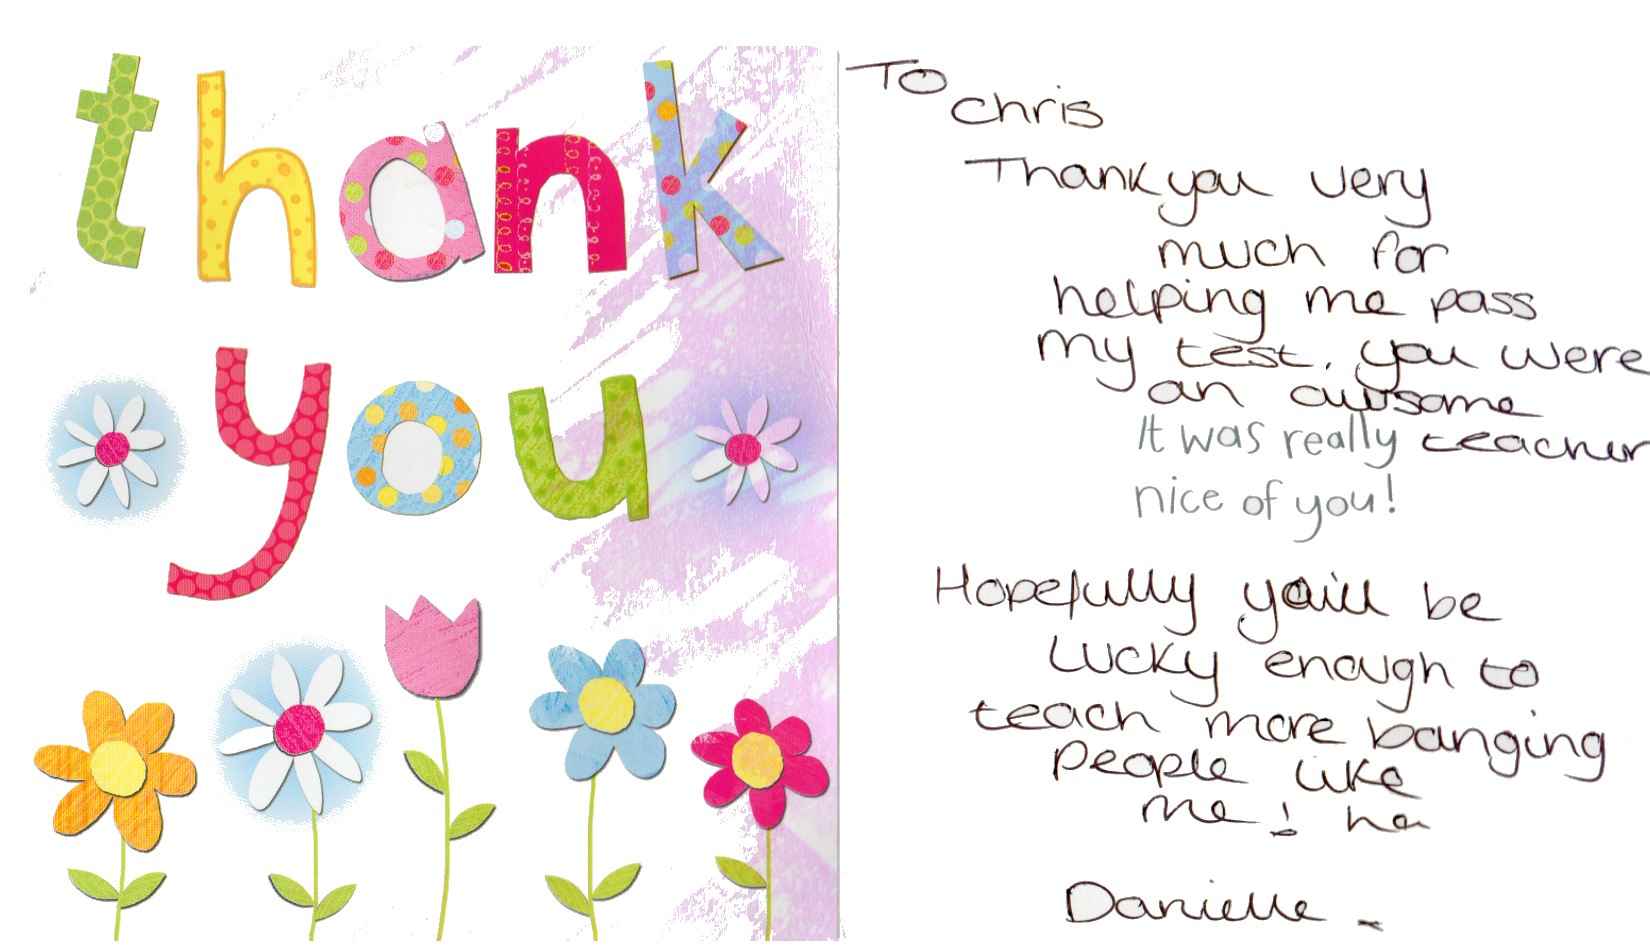 thank
you
To
Chris
Thankyou very
much for
helping me pass
my test, you were
an awsome
teacher
It was really
nice of you!
Hopefully you'll be
lucky enough to
teach more banging
people like
me! ha
Danielle